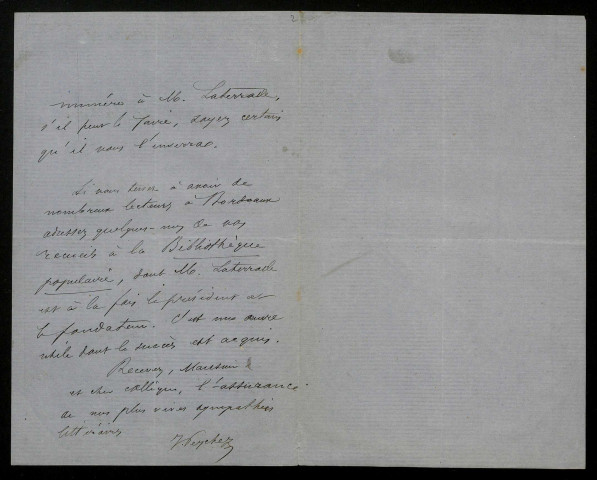 2
numéro à M. Laterrade,
s'il peut le faire, soyez certain
qu'il vous l'enverra.
Si vous tenez à avoir de
nombreux lecteurs à Bordeaux
adressez quelques-uns de vos
recueils à la Bibliothèque
populaire, dont M. Laterrade
est à la fois le président et
le fondateur. C'est une œuvre
utile dont le succès est acquis.
Recevez, Monsieur
et cher collègue, l'assurance
de nos plus vives sympathies
littéraires